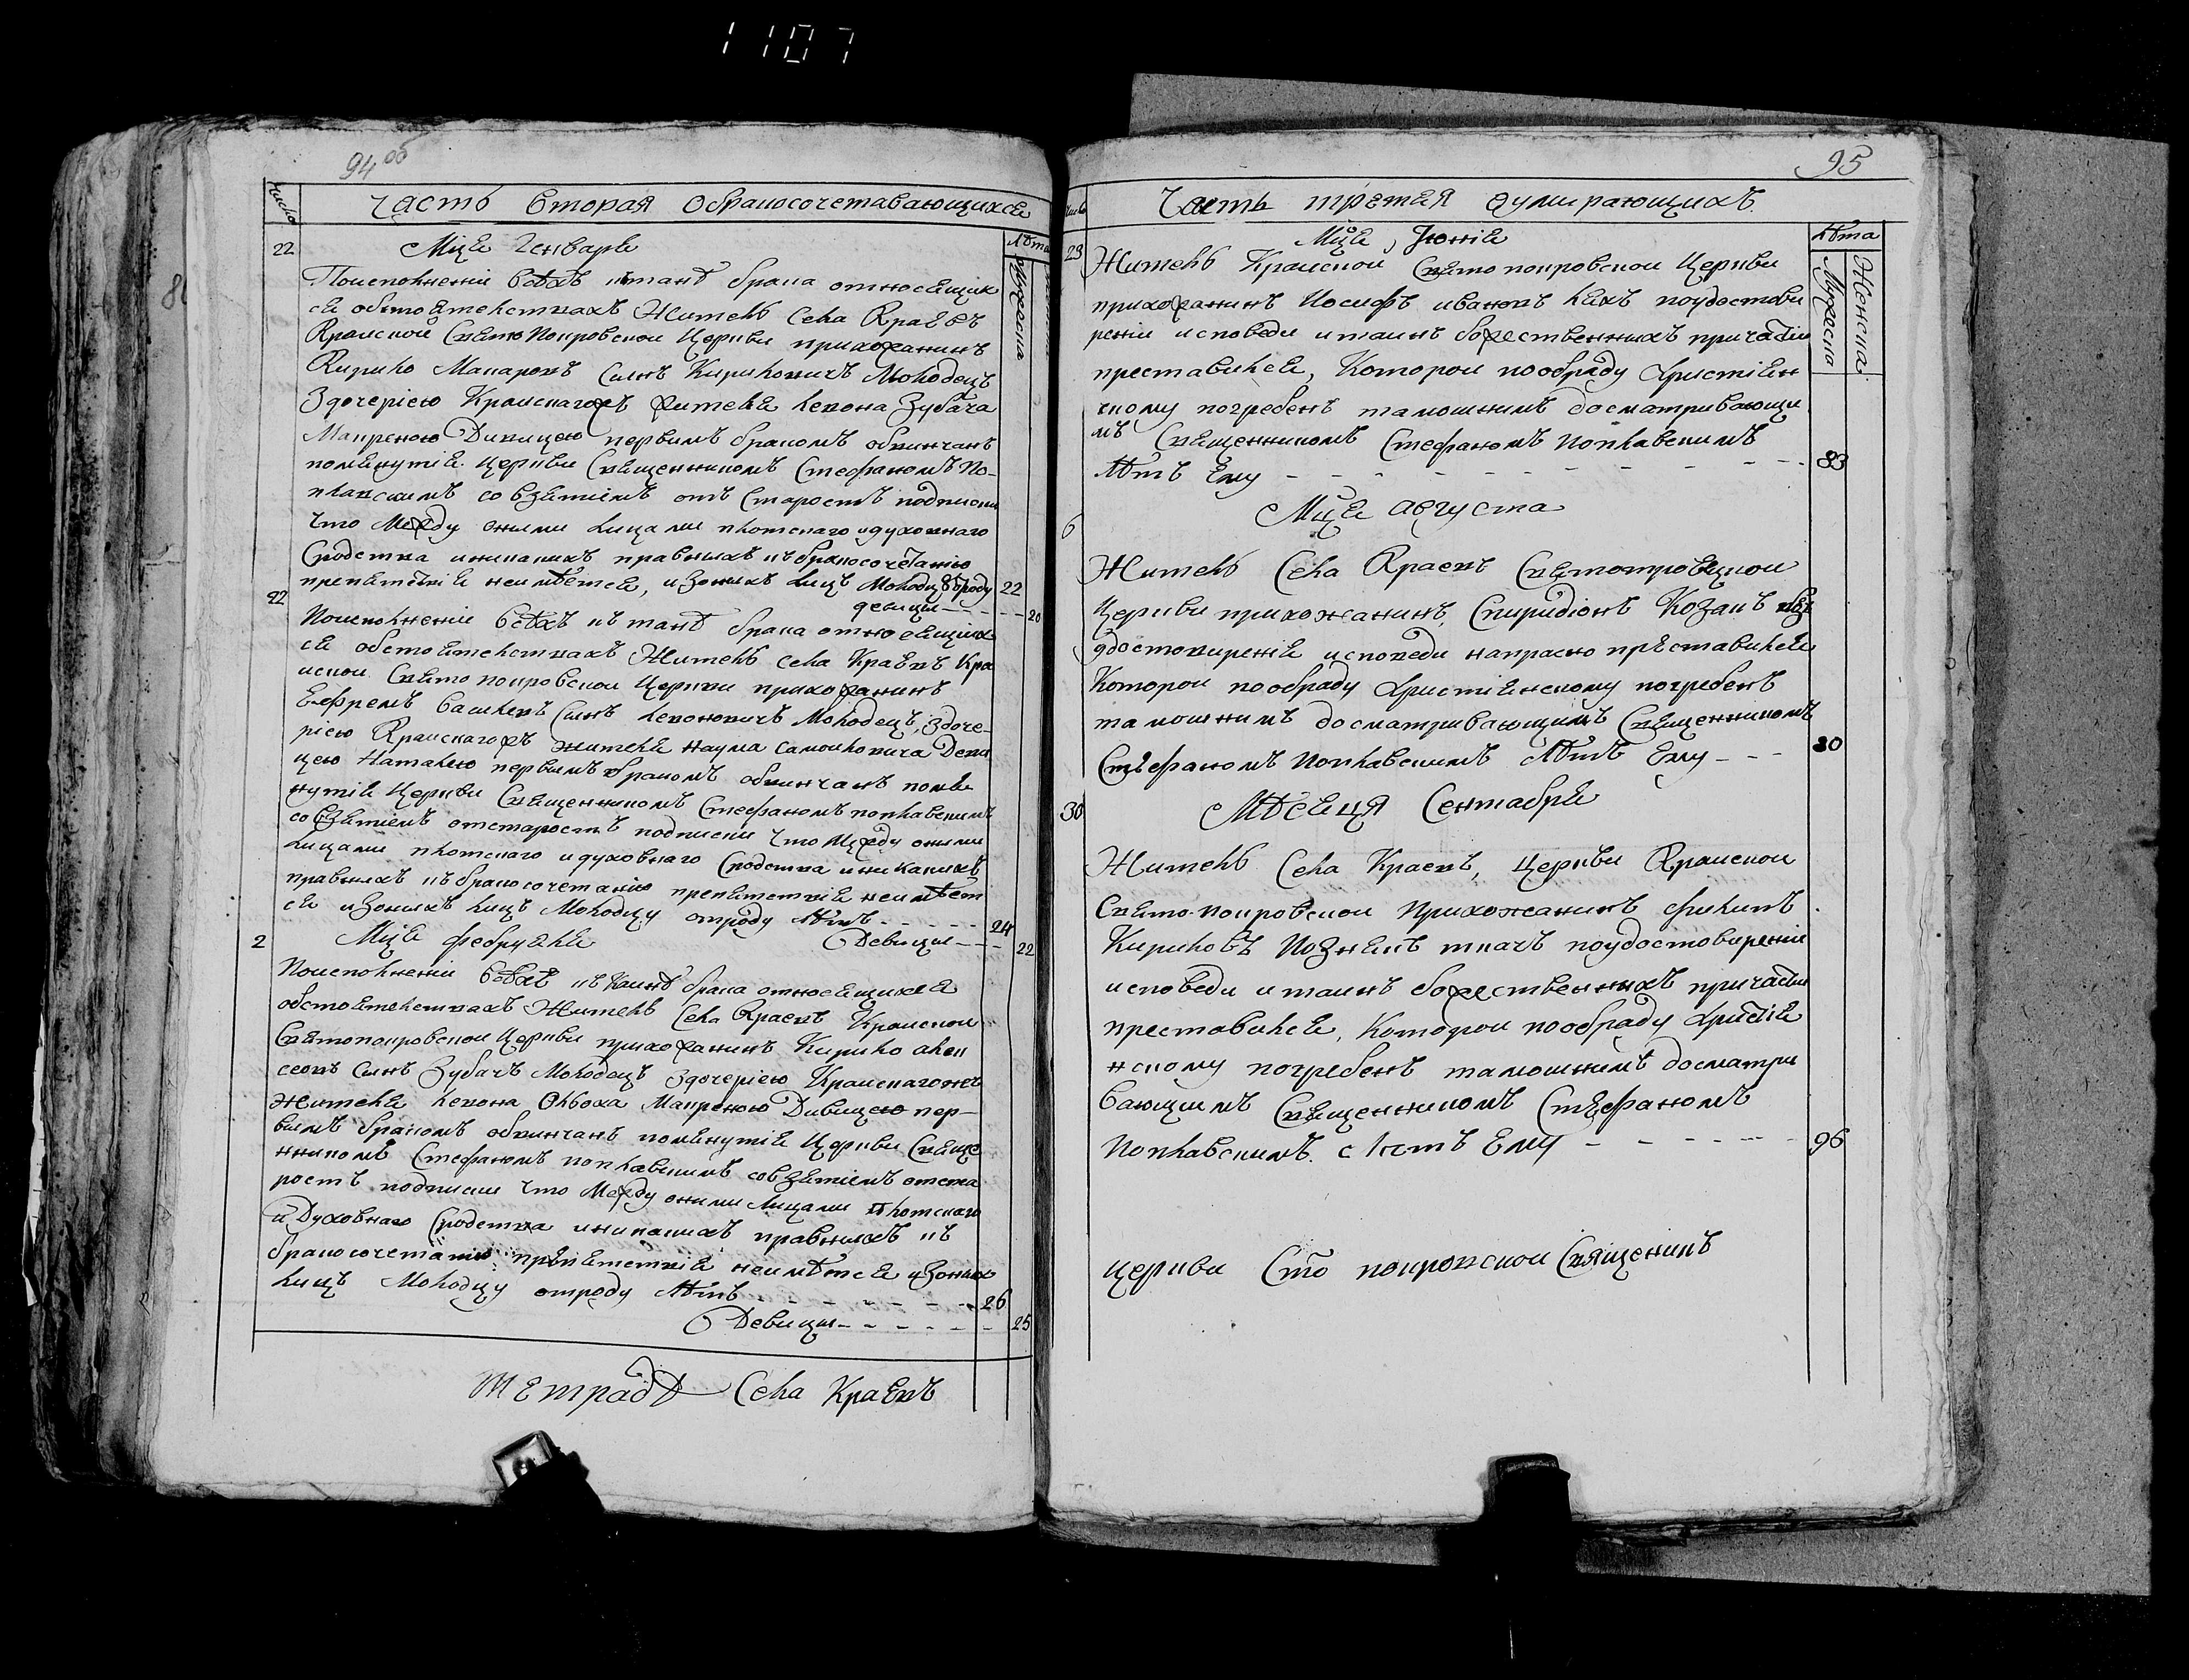 1107
94 об
число
Часть вторая обракосочетавающихся
Лѣта
Мужеска
22
Мцѧ Генварѧ
Поисполненіи всѣхъ ктаинѣ брака относящих
ся обстоятелствахъ Житель села Краевъ
Краиской Святопокровской Церкви прихожанинъ
Кирило Макаровъ Синъ Кириловичъ Молодецъ
Здочерїею Краискагожъ жителя Левона Зубача
Мапреною Дивицею первимъ бракомъ обвинчанъ
помянутія Церкви Священникомъ Стефаномъ По-
плавскимъ со взятіемъ отъ Старостъ подписки
Что Между оними лицами плотскаго идуховнаго
Сродства иникакихъ правилхъ къбракосочетанію
препятствія неимѣется, изонихъ лицъ Молодцу ѿроду 22
девици - - - - 20
22
Поисполненіи всѣхъ къ таинѣ брака относящихъ
ся обстоятелствахъ Житель села Краевъ Кра
искои Святопокровскои Церкви прихожанинъ
Ефремъ Васильевъ Синъ Левоновичъ Молодецъ, Здоче-
рїею Краискагожъ жителя Наума Самоиловича Деви
цею Наталею первимъ бракомъ обвинчанъ помя
нутія Церкви Священникомъ Стефаномъ Поплавскимъ
со взятіемъ отстаростъ подписки Что Между оними
лицами плотскаго идуховнаго Сродства иникакихъ
правилхъ къбракосочетанію препятствія неимѣет
ся изонихъ лицъ Молодцу отроду Лѣтъ - - - - - 24
Девици - - - 22
2
Мцѧ февруалѧ
Поисполненіи всѣхъ къ таинѣ брака относящихся
обстоятелствахъ Житель Села Краевъ Краискои
Святопокровскои Церкви прихожанинъ Кирило алек
сеовъ Синъ Зубачъ Молодецъ Здочерїею Краискагожъ
жителя Левона Олвоха Мапреною Дивицею пер-
вимъ бракомъ обвинчанъ помянутія Церкви Свяще
нникомъ Стефаномъ поплавскимъ совзятіемъ отста
ростъ подписки Что Между оними Лицами плотскаго
и Духовнаго Сродства иникакихъ правилхъ къ
бракосочетанію препятствія неимѣтся изоних
лицъ Молодцу отроду Лѣтъ - - - - - - - - 26
Девици - - - - - - - 25
Тетрадѣ Села Краевъ
95
Часть третея оумирающихъ
Лѣта
Мужеска
Женска
29
Мцѧ Іюнія
Житель Краискои Святопокровскои Церкви
прихожанинъ Иосифъ ивановъ Лехъ поудостови
реніи исповеди итаинъ божественнихъ причастіи
преставилея, Которои пообряду Християн
скому погребенъ тамошнимъ досматривающи
мъ Священникомъ Стефаномъ Поплавскимъ
Лѣтъ Ему - - - - - - - - - - - - 83
Мцѧ августа
6
Житель Села Краевъ Святопокровскои
Церкви прихожанинъ, Спиридіонъ Козакъ без
удостовиренія исповеди напрасно преставилея
Которои пообряду Християнскому погребенъ
тамошнимъ досматривающимъ Священникомъ
Стефаномъ Поплавскимъ Лѣтъ Ему - - - 80
30
Мѣсяця Сентабря
Житель Села Краевъ, Церкви Краискои
Святопокровскои Прихожанинъ филипъ
Кириловъ Познякъ ткачъ поудостовиреніи
исповеди итаинъ божественнихъ причастіи
преставился, Которои пообряду Христия
нскому погребенъ тамошнимъ досматри
вающимъ Священникомъ Стефаномъ
Поплавскимъ. Лѣтъ Ему - - - - - - - 96
Церкви Сто покровскои Священикъ